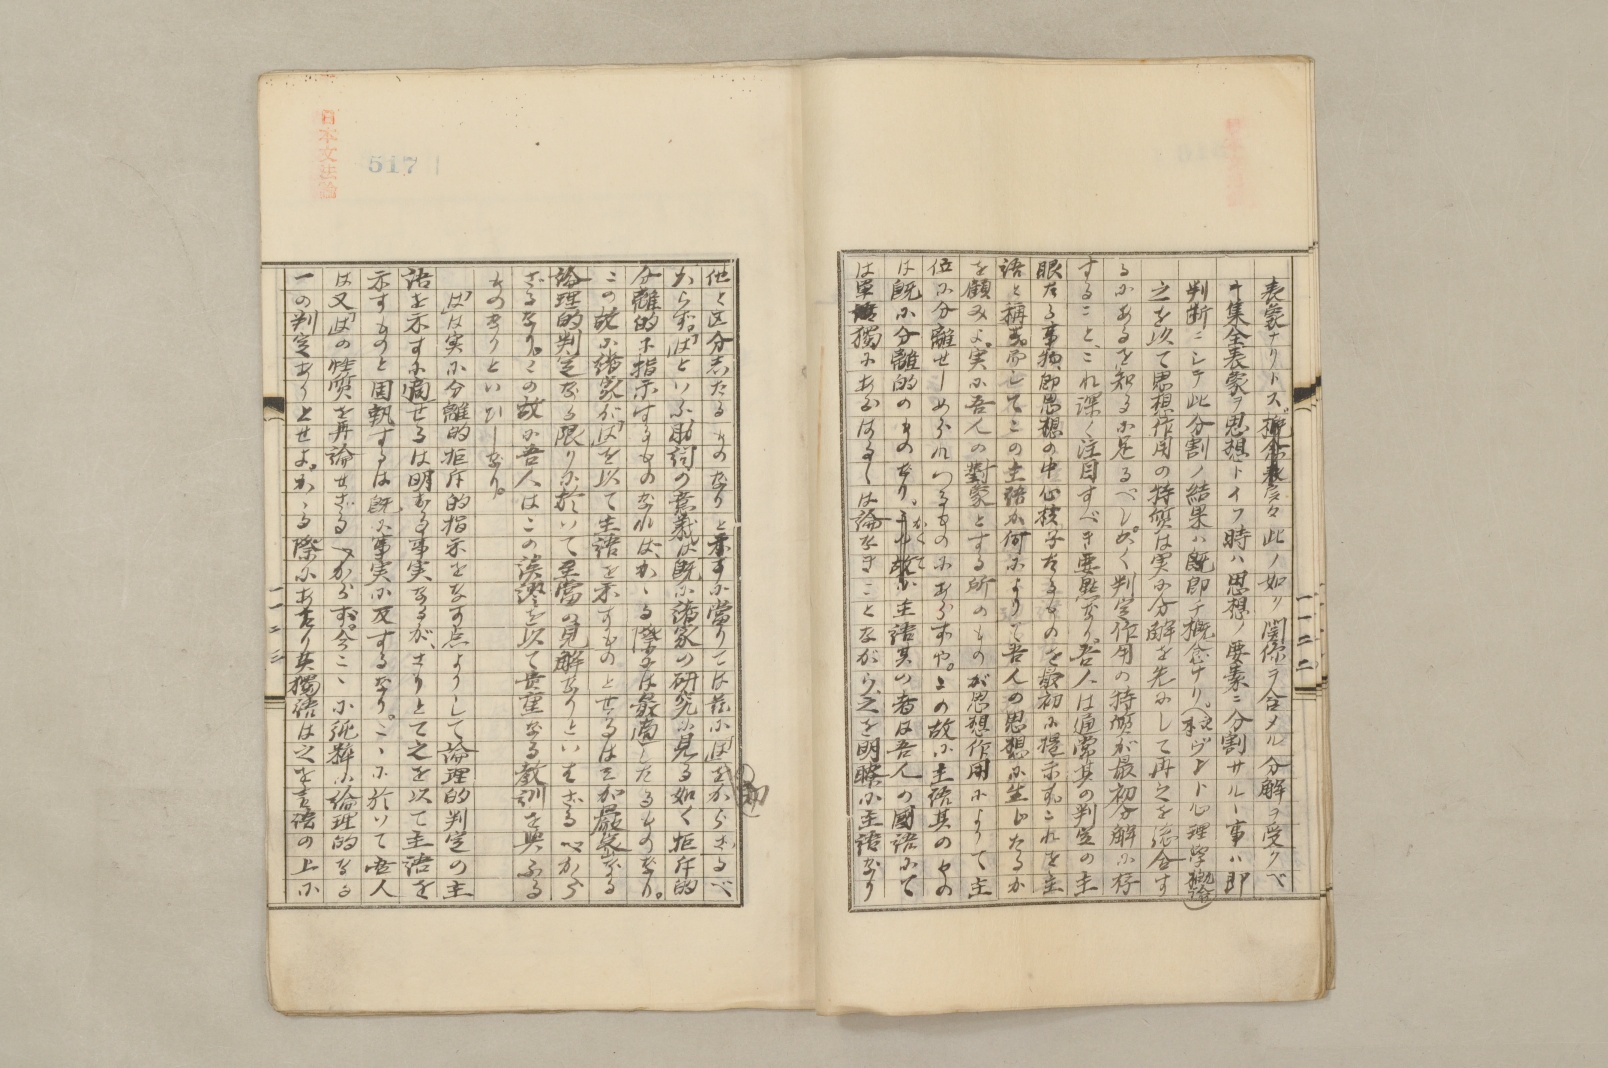 一一二二
表象ナリトス 云々 此ノ如ク関係ヲ含メル分解ヲ受クベ
キ集全表象ヲ思想トイフ時ハ思想ノ要素ニ分割サルヽ事ハ即
判断ニシテ此分割ノ結果ハ既即チ概念ナリ ヴント心理学概論
之を以て思想作用の特質は実に分解を先にして再之を総合す
るにあるを知るに足るべし。かく判定作用の特質が最初分解に存
すること、これ深く注目すべき要点なり。吾人は通常其の判定の主
眼たる事物即思想の中心核子たるものを最初に提示すこれを主
語と称す。而してこの主語が何によりて吾人の思想に生じたるか
を顧みよ。実に吾人の対象とする所のものが思想作用によりて主
位に分離せしめられつるものにあらずや。この故に主語其のもの
は既に分離的のものなり。かくて主語其の者は吾人の国語にて
は単独にあらはるゝは論なきことながら、之を明瞭に主語なり
日本文法論
517
他と区分したるものなりと示すに当りては茲に「は」をからざるべ
からず。「は」といふ助詞の意義は既に諸家の研究に見る如く拒斥的
分離的に指示するものなれば、かゝる際には最適したるものなり。
この故に諸家が「は」を以て主語を示すものとせるはそが厳密なる
論理的判定なる限りに於いて至当の見解なりといはざるべから
ざるなり。この故に吾人はこの誤謬を以て貴重なる教訓を与ふる
ものなりといひしなり。
「は」は実に分離的拒斥的指示をなす点よりして論理的判定の主
語を示すに適せるは明なる事実なるが、さりとて之を以て主語を
示すものと固執するは既に事実に反するなり。こゝに於いて吾人
は又「は」の性質を再論せざるべからず。今こゝに純粋に論理的なる
一の判定ありとせよ。かゝる際にありて其独語は之を言語の上に
一一二三